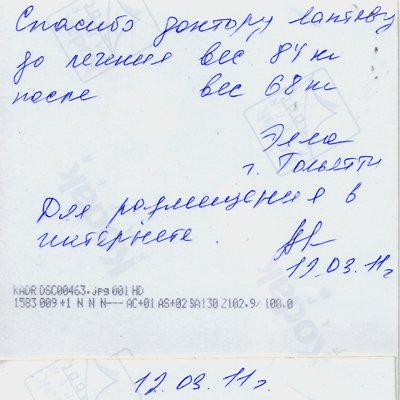 Спасибо доктору Лаптеву
до лечения вес 84 кг
после вес 68 кг
Элла
г. Тольятти
Для размещения в
интернете.
12.03.11г
KADR DSC00463.jpg 001 HD
1583 009 +1 N N N--- AC+01 AS+02 SA130 Z102.9/ 100.0
12.03.11г.